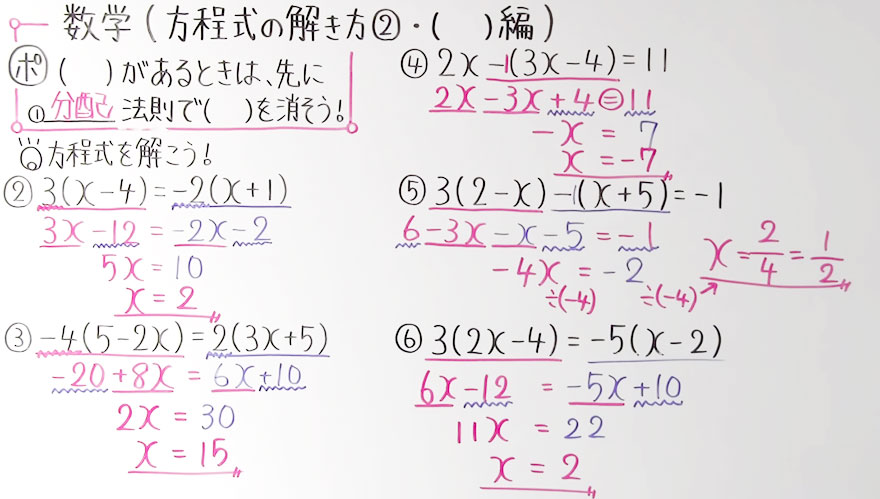 数学(方程式の解き方②・( )編)
ポ ( )があるときは、先に
①分配法則で( )を消そう!
方程式を解こう!
② 3(x-4)=-2(x+1)
3x-12=-2x-2
5x=10
x=2
③ -4(5-2x)=2(3x+5)
-20+8x=6x+10
2x=30
x=15
④ 2x-1(3x-4)=11
2x-3x+4=11
-x=7
x=-7
⑤ 3(2-x)-1(x+5)=-1
6-3x-x-5=-1
-4x=-2
÷(-4) ÷(-4)
x=2/4=1/2
⑥ 3(2x-4)=-5(x-2)
6x-12=-5x+10
11x=22
x=2